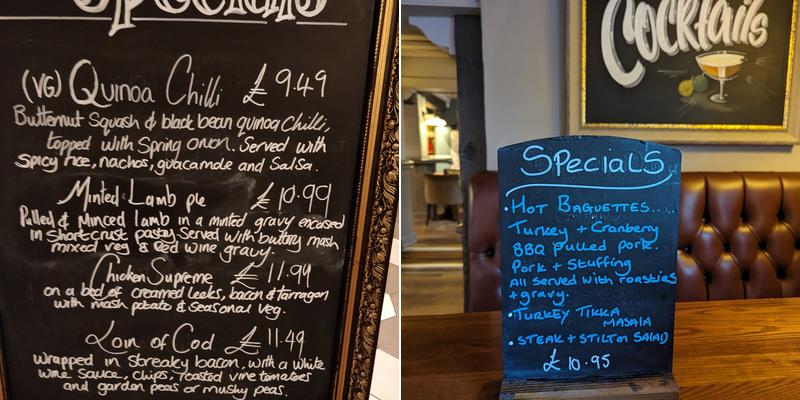 Specials
(VG) Quinoa Chilli £9.49
Butternut Squash & black bean quinoa Chilli,
topped with Spring onion. Served with
Spicy rice, nachos, guacamole and Salsa.
Minted Lamb pie £10.99
Pulled & Minced lamb in a minted gravy encased
in Shortcrust pastry. Served with buttery mash
mixed veg & Red wine gravy.
Chicken Supreme £11.99
on a bed of creamed leeks, bacon & tarragon
with mash potato & Seasonal veg.
Loin of Cod £11.49
wrapped in streaky bacon, with a white
wine sauce, chips, roasted vine tomatoes
and garden peas or mushy peas.
Cocktails
Specials
• Hot Baguettes....
Turkey + Cranberry
BBQ Pulled pork.
Pork + Stuffing
All served with roasties
+ gravy.
• Turkey Tikka
Masala
• Steak + Stilton Salad
£10.95